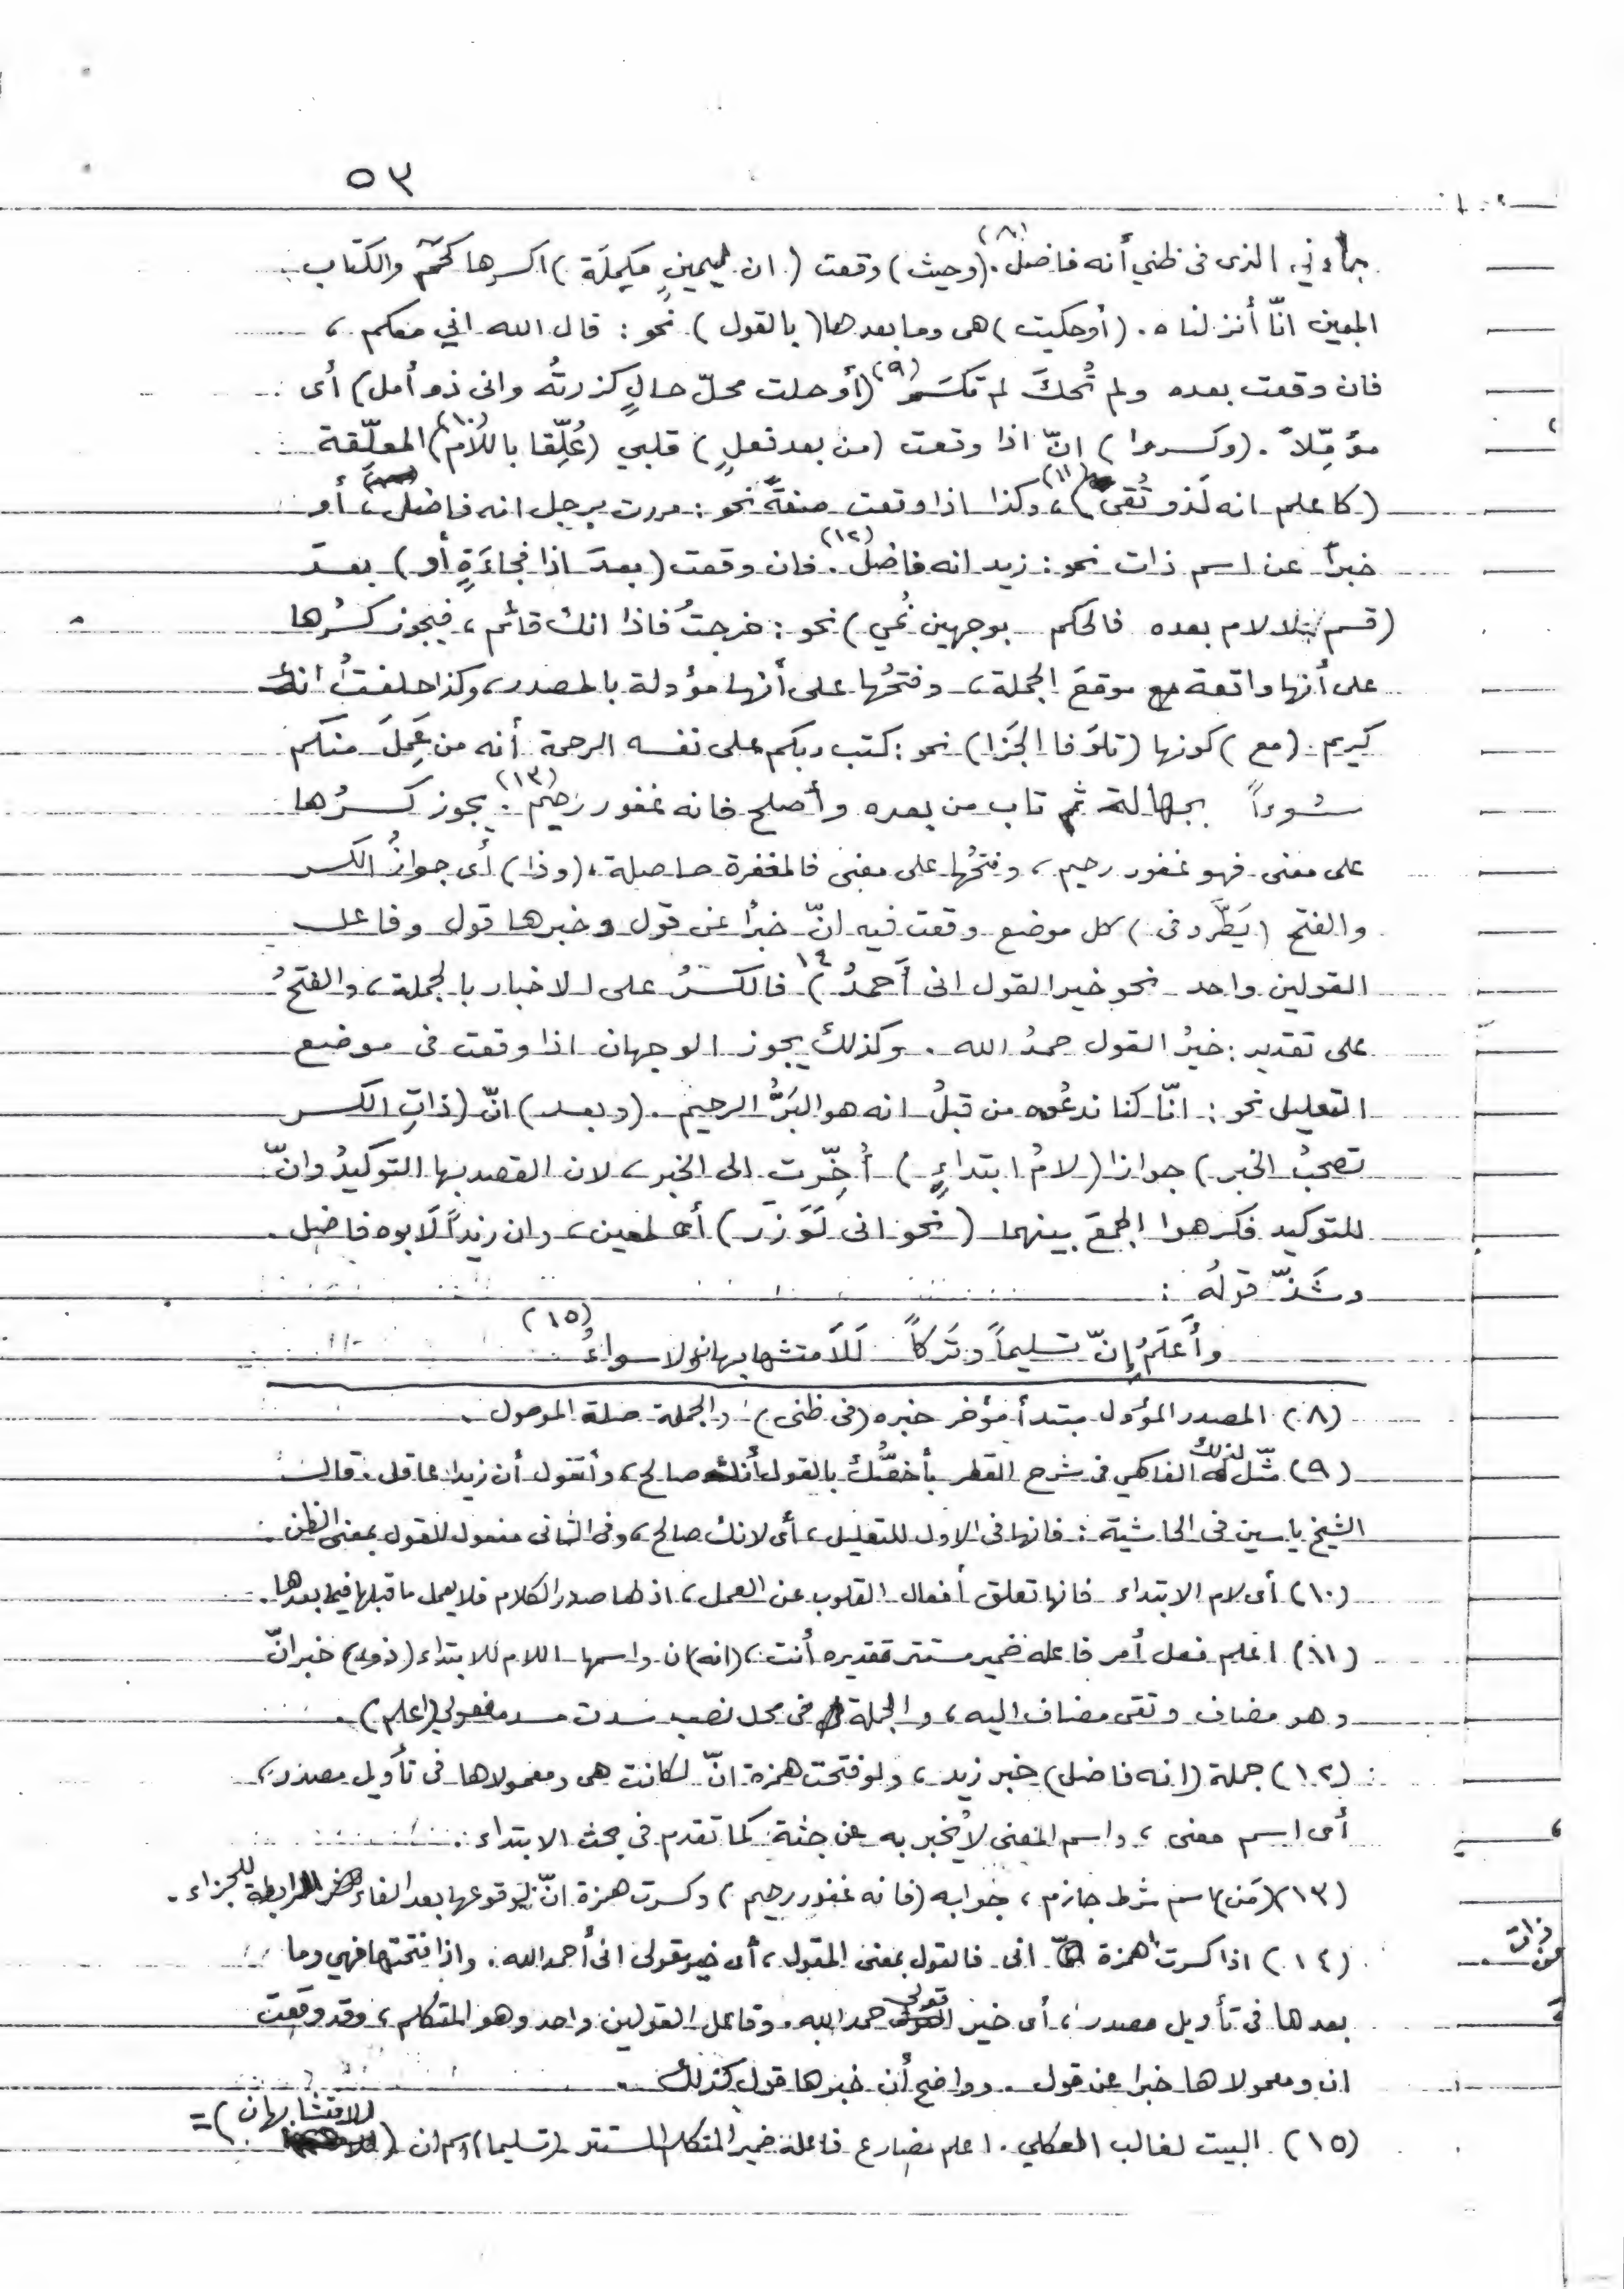 ٥٣
جاءني الذى فى ظني أنه فاضل.(٨) (وحيث) وقعت (ان ليمينٍ مكمِلَة) اكسرها كحمۤ والكتاب
المبين انّا أنزلناه. (أوحكيت) هى وما بعدها (بالقول) نحو: قال الله اني معكم،
فان وقعت بعده ولم تُحكَ لم تكسَر(٩) (أوحلت محلّ حالٍ كزرتُه وانى ذو أمل) أى
مؤمِّلاً. (وكسروا) انّ اذا وقعت (من بعد فعلٍ) قلبي (عُلِّقا باللام)(١٠) المعلّقة
(كاعلم انه لَذو تُقى)(١١)، وكذا اذا وقعت صفةً نحو: مررت برجل انه فاضل، أو
خبراً عن اسم ذات نحو: زيد انه فاضل(١٢). فان وقعت (بعدَ اذا فجاءَةٍ أو) بعدَ
(قسم لا لام بعده فالحكم بوجهين نُمي) نحو: خرجتُ فاذا انك قائم، فيجوز كسرُها
على أنها واقعة موقعَ الجملة، وفتحُها على أنها مؤولة بالمصدر، وكذا حلفتُ انك
كريم. (مع) كونها (تلوَ فا الجَزا) نحو: كتب ربكم على نفسه الرحمة أنه من عَمِلَ منكم
سُوءاً بجهالة ثم تاب من بعده وأصلح فانه غفور رحيم(١٣). يجوز كسرُها
على معنى فهو غفور رحيم، وفتحُها على معنى فالمغفرة حاصلة، (وذا) أى جوازُ الكسر
والفتح (يَطَّرد فى) كل موضع وقعت فيه انّ خبراً عن قول وخبرها قول وفاعل
القولين واحد نحو خير القول انى أَحمدُ)١٤ فالكسرُ على الاخبار بالجملة، والفتحُ
على تقدير: خيرُ القول حمدُ الله. وكذلك يجوز الوجهان اذا وقعت فى موضع
التعليل نحو: انّا كنا ندعُوه من قبلُ انه هو البَرُّ الرحيم. (وبعد) انّ (ذاتِ الكسر
تصحبُ الخبر) جوازا (لامُ ابتداءٍ) أُخِّرت الى الخبر، لان القصد بها التوكيدُ وانّ
للتوكيد فكرهوا الجمعَ بينهما (نحو انى لَوَزَر) أى لمعين، وان زيداً لَابوه فاضل.
وشَذّ قولُه :
وأَعلَمُ إنّ تسليماً وتَركاً لَلَامتشابهانِ ولا سواءُ(١٥)
(٨) المصدر المؤول مبتدأ مؤخر خبره (فى ظنى) والجملة صلة الموصول.
(٩) مثّل لذلك الفاكهي فى شرح القطر بأخصُّك بالقول أنك صالح، وأتقول أن زيدا عاقل. قال
الشيخ ياسين فى الحاشية: فانها فى الاول للتعليل، أى لانك صالح، وفى الثانى مفعول للقول بمعنى الظن.
(١٠) أى لام الابتداء فانها تعلق أفعال القلوب عن العمل، اذ لها صدر الكلام فلا يعمل ما قبلها فيما بعدها.
(١١) اعلم فعل أمر فاعله ضمير مستتر تقديره أنت، (انه) ان واسمها اللام للابتداء (ذو) خبر انّ
وهو مضاف وتقى مضاف اليه، والجملة فى محل نصب سدت مسد مفعولي (اعلم).
(١٢) جملة (انه فاضل) خبر زيد، ولو فتحت همزة انّ لكانت هى ومعمولاها فى تأويل مصدر،
أى اسم معنى، واسم المعنى لا يُخبر به عن جثة كما تقدم فى بحث الابتداء.
(١٣) (مَن) اسم شرط جازم، جوابه (فانه غفور رحيم) وكسرت همزة انّ لوقوعها بعد الفاء الرابطة للجزاء.
(١٤) اذا كسرت همزة انى فالقول بمعنى المقول، أى خير مقولى انى أحمد الله. واذا فتحتها فهي وما
بعدها فى تأويل مصدر، أى خير قولى حمد الله. وفاعل القولين واحد وهو المتكلم، وقد وقعت
ان ومعمولاها خبرا عن قول. وواضح أن خبرها قول كذلك.
(١٥) البيت لغالب العكلي. اعلم مضارع فاعله ضمير المتكلم المستتر (تسليما) اسم ان (للامتشابهان) =